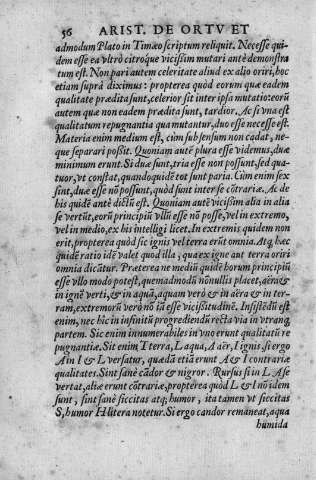 56 ARIST. DE ORTV ET
admodum Plato in Timæo scriptum reliquit. Necesse qui-
dem esse ea vltro citroque vicißim mutari antè demonstra
tum est. Non pari autem celeritate aliud ex alio oriri, hoc
etiam suprà diximus: propterea quòd eorum quæ eadem
qualitate prædita sunt, celerior sit inter ipsa mutatio: eorū
autem quæ non eadem prædita sunt, tardior. Ac si vna est
qualitatum repugnantia qua mutantur, duo esse necesse est.
Materia enim medium est, cùm sub sensum non cadat, ne-
que separari poßit. Quoniam autē plura esse videmus, duæ
minimum erunt. Si duæ sunt, tria esse non possunt, sed qua-
tuor, vt constat, quandoquidē tot sunt paria. Cùm enim sex
sint, duæ esse nō possunt, quòd sunt inter se cōtrariæ. Ac de
his quidē antè dictū est. Quoniam autē vicißim alia in alia
se vertūt, eorū principiū vllū esse nō posse, vel in extremo,
vel in medio, ex his intelligi licet. In extremis quidem non
erit, propterea quòd sic ignis vel terra erūt omnia. Atq; hæc
quidē ratio idē valet quod illa, qua ex igne aut terra oriri
omnia dicūtur. Præterea ne mediū quidē horum principiū
esse vllo modo potest, quemadmodū nōnullis placet, aëra &
in ignē verti, & in aquā, aquam verò & in aëra & in ter-
ram, extremorū verò nō iū esse vicißitudinē. Insistēdū est
enim, nec hîc in infinitū progrediendū recta via in vtranq;
partem. Sic enim innumerabiles in vno erunt qualitatū re
pugnantiæ. Sit enim T terra, L aqua, A aër, I ignis, si ergo
A in I & L versatur, quædā etiā erunt A & I contrariæ
qualitates. Sint sanè cādor & nigror. Rursus si in L A se
vertat, aliæ erunt cōtrariæ, propterea quòd L & I nō idem
sunt, sint sanè siccitas atq; humor, ita tamen vt siccitas
S, humor H litera notetur. Si ergo candor remaneat, aqua
humida